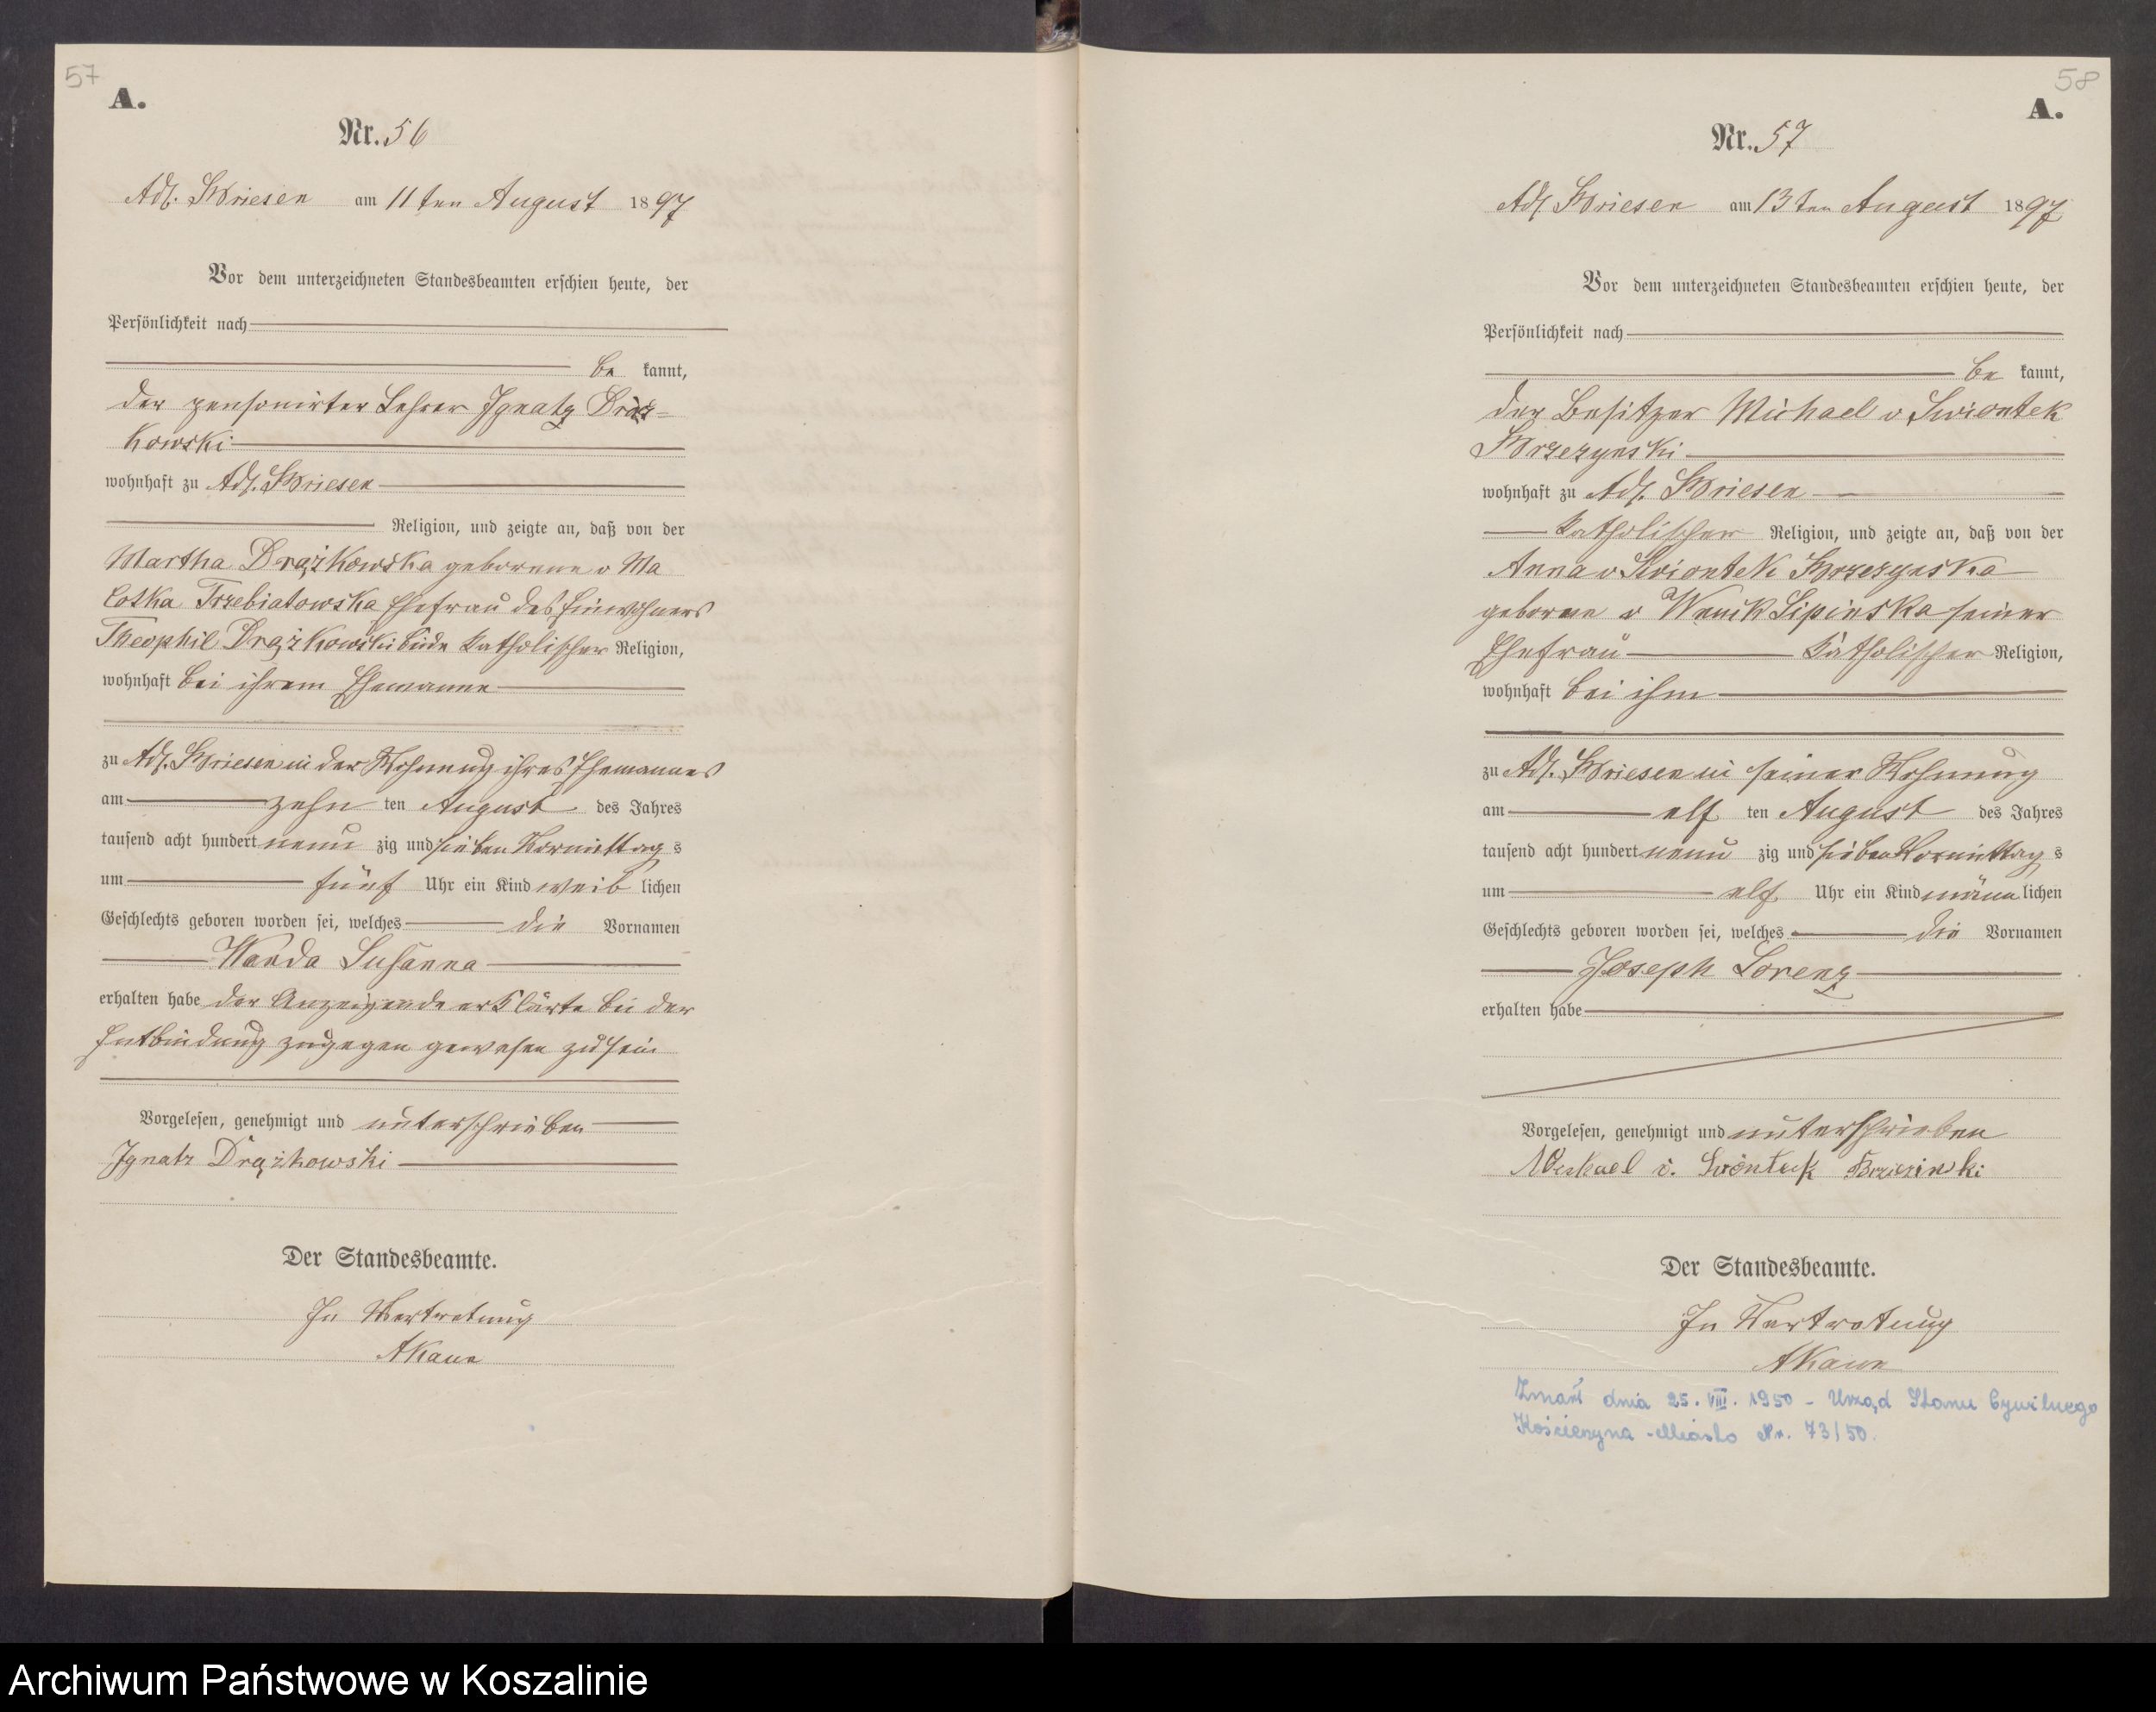 57
A.
Nr. 56
Adl. Briesen am 11ten August 1897
Vor dem unterzeichneten Standesbeamten erschien heute, der
Persönlichkeit nach
be kannt,
der pensonirter Lehrer Ignatz Dräz=
kowski
wohnhaft zu Adl. Briesen
Religion, und zeigte an, daß von der
Martha Drążkowska geborene v Ma
lotka Trzebiatowska Ehefrau des Einwohners
Theophil Drążkowski beide katholischer Religion,
wohnhaft bei ihrem Ehemanne
zu Adl. Briesen in der Wohnung ihres Ehemannes
am zehn ten August des Jahres
tausend acht hundert neun zig und sieben Vormittag s
um fünf Uhr ein Kind weib lichen
Geschlechts geboren worden sei, welches die Vornamen
Wanda Susanna
erhalten habe der Anzeigende erklärte bei der
Entbindung zugegen gewesen zu sein
Vorgelesen, genehmigt und unterschrieben
Ignatz Drążkowski
Der Standesbeamte.
In Vertretung
58
A.
Nr. 57
Adl Briesen am 13ten August 1897
Vor dem unterzeichneten Standesbeamten erschien heute, der
Persönlichkeit nach
be kannt,
der Besitzer Michael v Swiontek
Brzezynski
wohnhaft zu Adl. Briesen
katholischer Religion, und zeigte an, daß von der
Anna v Swiontek Brzezynska
geborene v Wnuck Lipinska seiner
Ehefrau katholischer Religion,
wohnhaft bei ihm
zu Adl. Briesen in seiner Wohnung
am elf ten August des Jahres
tausend acht hundert neun zig und sieben Vormittag s
um elf Uhr ein Kind männ lichen
Geschlechts geboren worden sei, welches die Vornamen
Joseph Lorenz
erhalten habe
Vorgelesen, genehmigt und unterschrieben
v.
Der Standesbeamte.
In Vertretung
Zmarł dnia 25. VIII. 1950 - Urząd Stanu Cywilnego
Kościerzyna - Miasto Nr. 73/50.
Archiwum Państwowe w Koszalinie